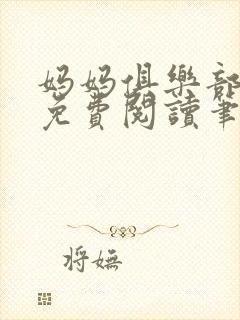 妈妈俱樂部
免費閱讀筆
将嫵